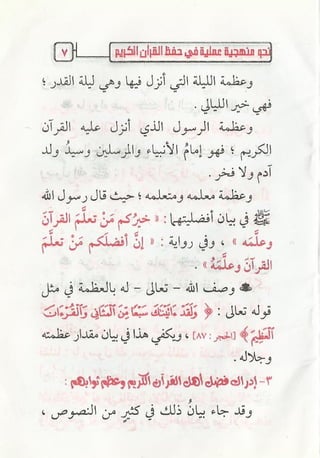 نحو منهجية عملية في حفظ القرآن الكريم ٧
وعظمة الليلة التي أنزل فيها وهي ليلة القدر ؛
فهي خير الليالي .
وعظمة الرسول الذي أنزل عليه القرآن
الكريم ؛ فهو إمامُ الأنبياء والمرسلين وسيدُ ولد
آدم ولا فخر .
وعظمة معلمه ومتعلمه ؛ حيث قال رسول الله
ﷺ في بيان أفضليتهما : « خيرُكم مَنْ تعلَّمَ القرآنَ
وعلَّمَه » ، وفي رواية : « إنَّ أفضلَكم مَنْ تعلَّمَ
القرآنَ وعلَّمَهُ » .
وصف الله - تعالى - له بالعظمة في مثل
قوله تعالى : ﴿ وَلَقَدْ ءَاتَيْنَٰكَ سَبْعًا مِّنَ ٱلْمَثَانِي وَٱلْقُرْءَانَ
ٱلْعَظِيمَ ﴾ [الحجر : ٨٧] ، ويكفي هذا في بيان مقدار عظمته
وجلاله .
٣- إدراك فضل أهل القرآن الكريم وعظم ثوابهم :
وقد جاء بيانُ ذلك في كثيرٍ من النصوص ،